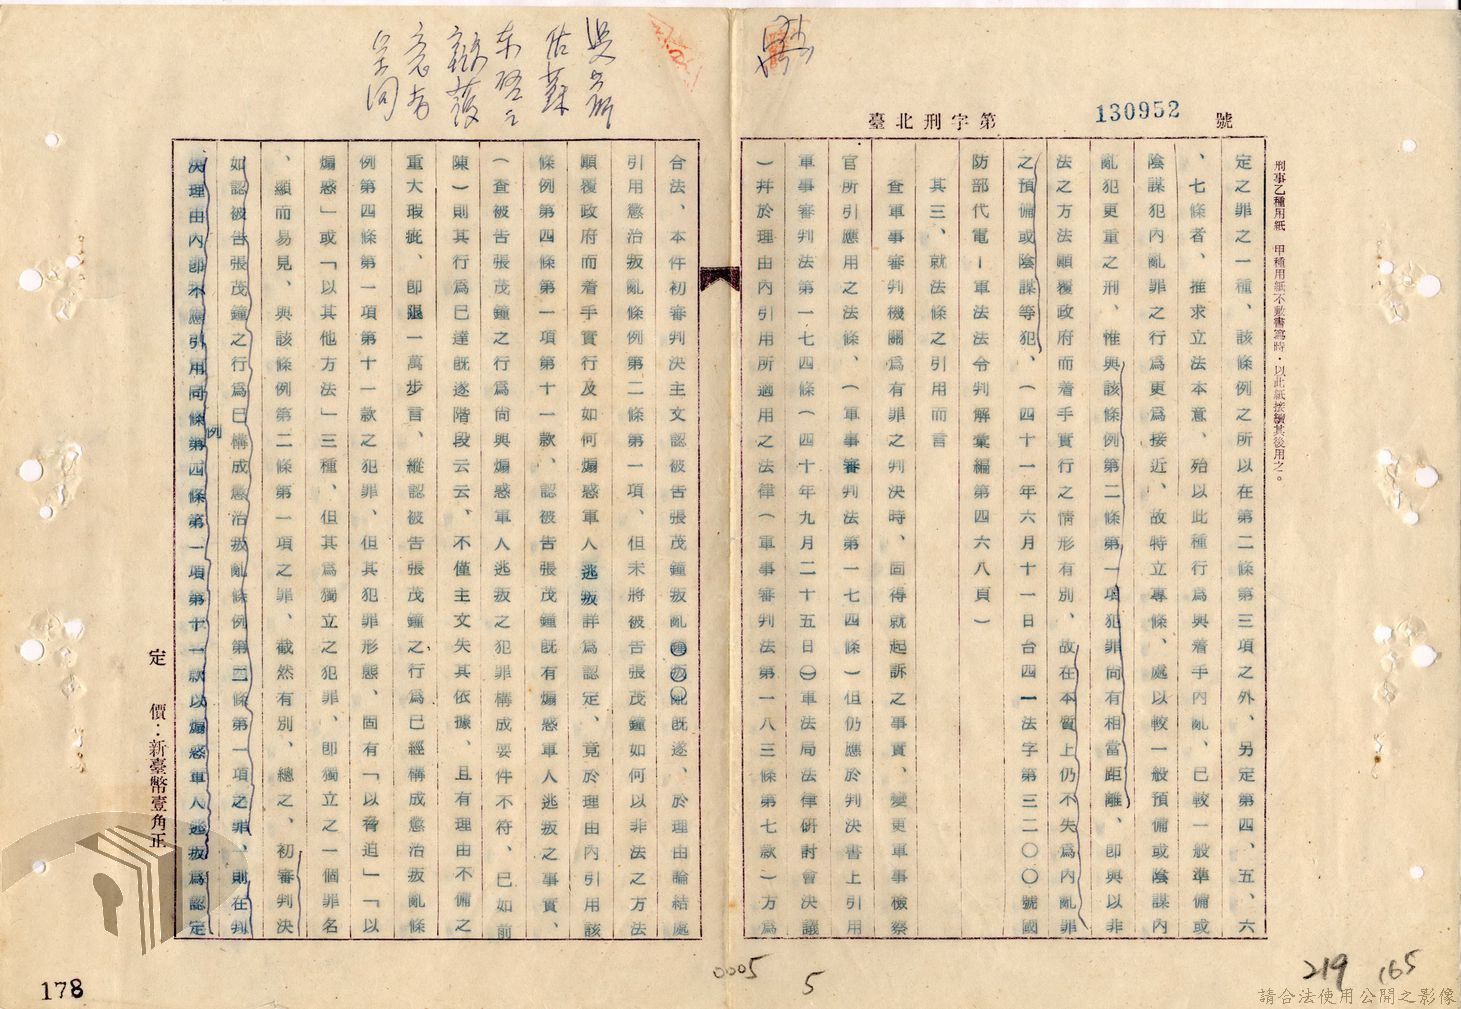 臺北刑字第130952號
刑事乙種用紙　甲種用紙不敷書寫時，以此紙接續其後用之。
定之罪之一種、該條例之所以在第二條第三項之外、另定第四、五、六
、七條者、推求立法本意、殆以此種行為與着手內亂、已較一般準備或
陰謀犯內亂罪之行為更為接近、故特立專條、處以較一般預備或陰謀內
亂犯更重之刑、惟與該條例第二條第一項犯罪尚有相當距離、即與以非
法之方法顛覆政府而着手實行之情形有別、故在本質上仍不失為內亂罪
之預備或陰謀等犯、（四十一年六月十一日台四一法字第三二〇〇號國
防部代電—軍法法令判解彙編第四六八頁）
其三、就法條之引用而言
查軍事審判機關為有罪之判決時、固得就起訴之事實、變更軍事檢察
官所引應用之法條、（軍事審判法第一七四條）但仍應於判決書上引用
軍事審判法第一七四條（四十年九月二十五日㊀軍法局法律研討會決議
）幷於理由內引用所適用之法律（軍事審判法第一八三條第七款）方為
合法、本件初審判決主文認被告張茂鐘叛亂既遂、於理由論結處
引用懲治叛亂條例第二條第一項、但未將被告張茂鐘如何以非法之方法
顛覆政府而着手實行及如何煽惑軍人逃叛詳為認定、竟於理由內引用該
條例第四條第一項第十一款、認被告張茂鐘既有煽惑軍人逃叛之事實、
（查被告張茂鐘之行為尚與煽惑軍人逃叛之犯罪構成要件不符、已如前
陳）則其行為已達既遂階段云云、不僅主文失其依據、且有理由不備之
重大瑕疵、即退一萬步言、縱認被告張茂鐘之行為已經構成懲治叛亂條
例第四條第一項第十一款之犯罪、但其犯罪形態、固有「以脅迫」「以
煽惑」或「以其他方法」三種、但其為獨立之犯罪、即獨立之一個罪名
、顯而易見、與該條例第二條第一項之罪、截然有別、總之、初審判決
如認被告張茂鐘之行為已構成懲治叛亂條例第二條第一項之罪、則在判
決理由內即不應引用同條例第四條第一項第十一款以煽惑軍人逃叛為認定
定　價：新臺幣壹角正
178
0005
5
219
165
請合法使用公開之影像